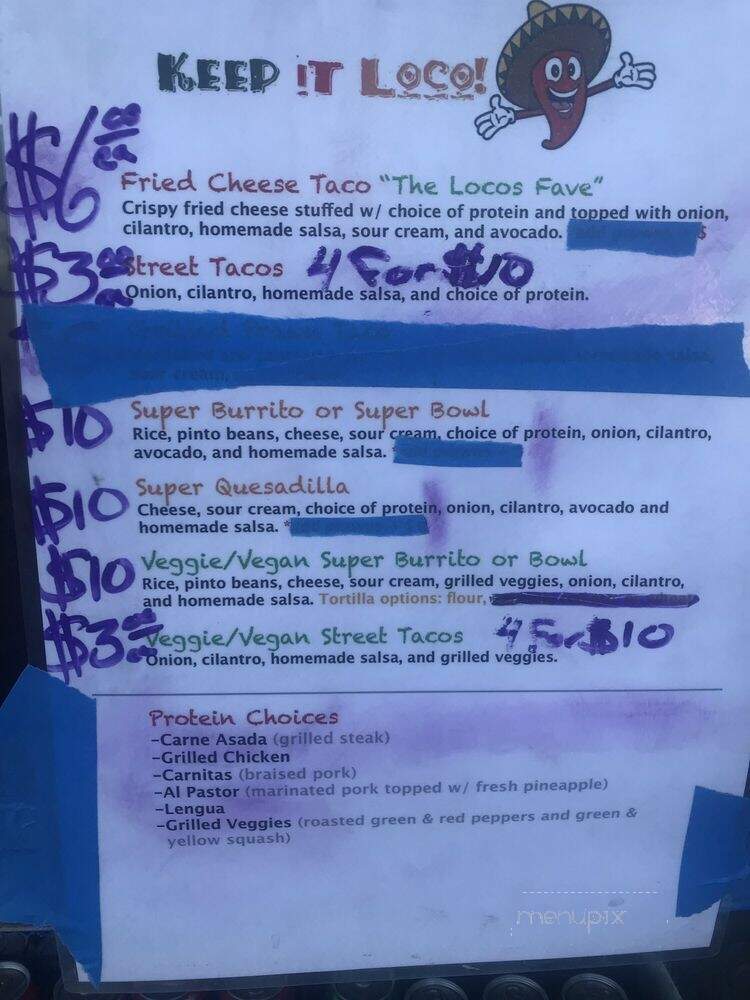 KEEP IT LOCO!
$6 00 ea
Fried Cheese Taco "The Locos Fave"
Crispy fried cheese stuffed w/ choice of protein and topped with onion,
cilantro, homemade salsa, sour cream, and avocado. $
$3 00 ea Street Tacos 4 For $10
Onion, cilantro, homemade salsa, and choice of protein.
$10 Super Burrito or Super Bowl
Rice, pinto beans, cheese, sour cream, choice of protein, onion, cilantro,
avocado, and homemade salsa.
$10 Super Quesadilla
Cheese, sour cream, choice of protein, onion, cilantro, avocado and
homemade salsa. *
$10 Veggie/Vegan Super Burrito or Bowl
Rice, pinto beans, cheese, sour cream, grilled veggies, onion, cilantro,
and homemade salsa. Tortilla options: flour,
$3 00 ea Veggie/Vegan Street Tacos 4 For $10
Onion, cilantro, homemade salsa, and grilled veggies.
Protein Choices
-Carne Asada (grilled steak)
-Grilled Chicken
-Carnitas (braised pork)
-Al Pastor (marinated pork topped w/ fresh pineapple)
-Lengua
-Grilled Veggies (roasted green & red peppers and green &
yellow squash)
menupix